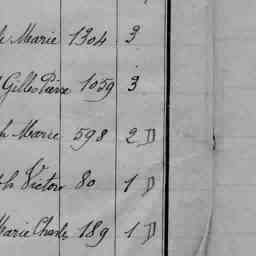 Marie 1304 3
Gilles Pierre 1059 3
h Marie 598 2 D
ph Victor 80 1 D
Marie Charles 189 1 D